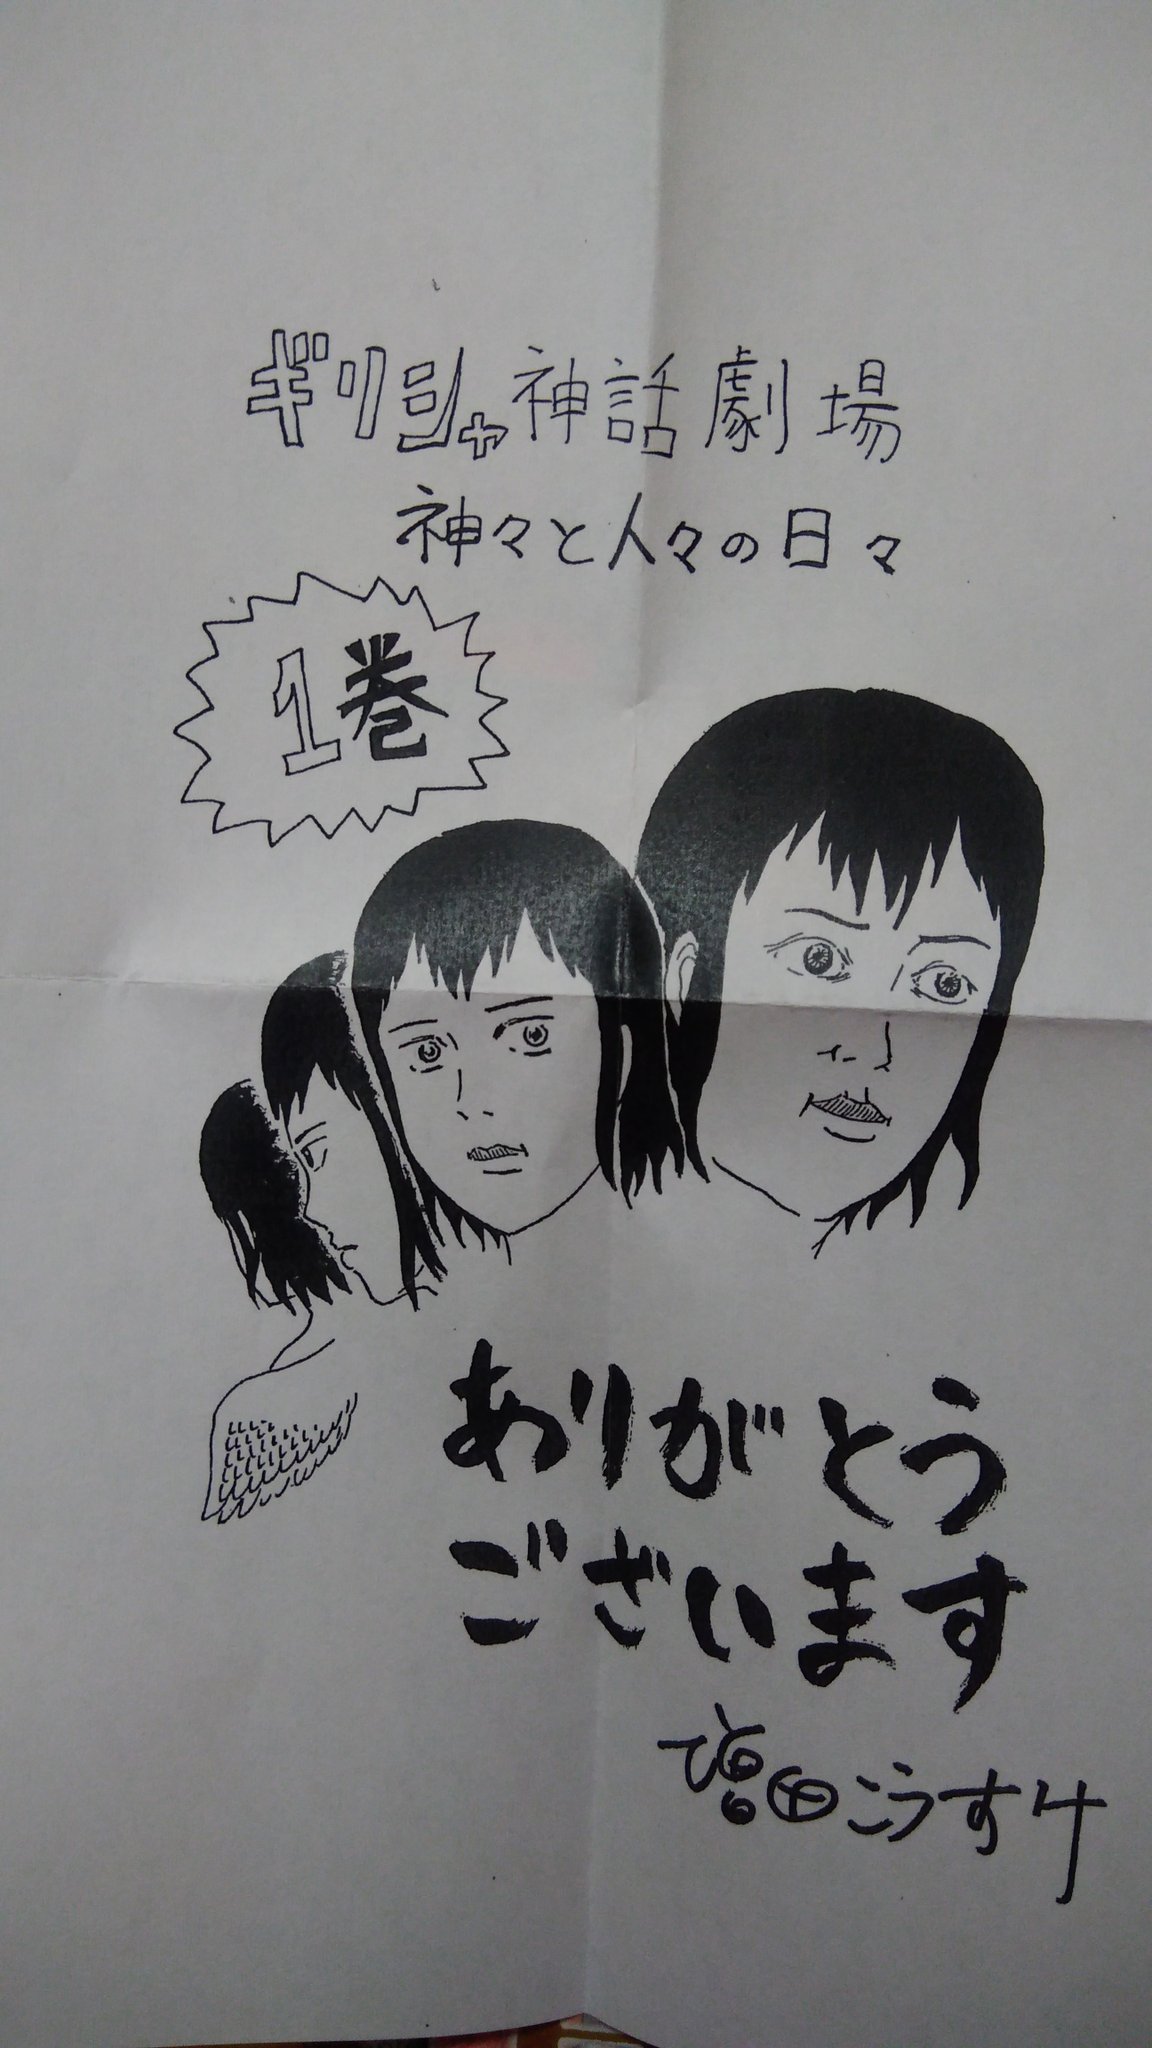 ギリシャ神話劇場
神々と人々の日々
1巻
ありがとう
ございます
増田こうすけ